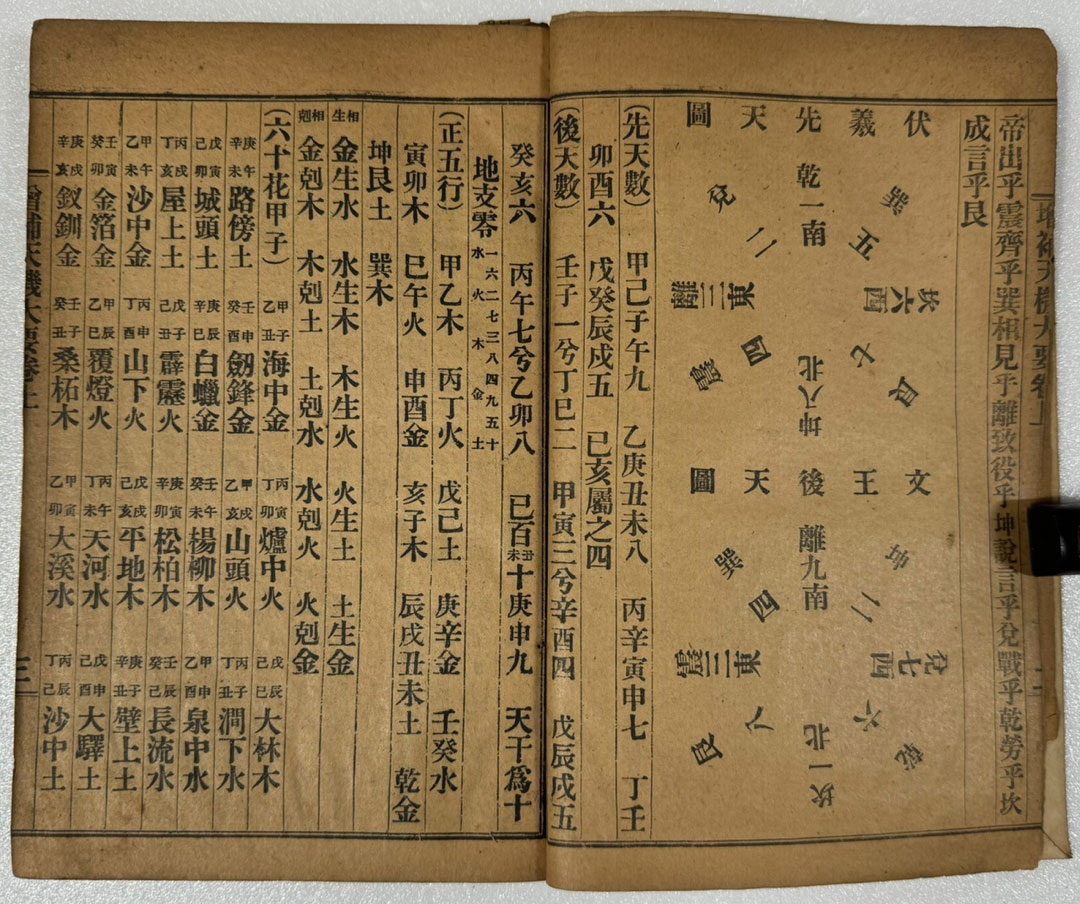 增補天機大要卷上
帝出乎震齊乎巽相見乎離致役乎坤說言乎兌戰乎乾勞乎坎
成言乎艮
伏羲先天圖
乾一南
兌二
離三東
震四
巽五
坎六西
艮七
坤八北
文王後天圖
離九南
坤二
兌七西
乾六
坎一北
艮八
震三東
巽四
(先天數) 甲己子午九 乙庚丑未八 丙辛寅申七 丁壬
卯酉六 戊癸辰戌五 巳亥屬之四
(後天數) 壬子一兮丁巳二 甲寅三兮辛酉四 戊辰戌五
癸亥六 丙午七兮乙卯八 己百丑未十庚申九 天干爲十
地支零 一六水 二七火 三八木 四九金 五十土
(正五行) 甲乙木 丙丁火 戊己土 庚辛金 壬癸水
寅卯木 巳午火 申酉金 亥子木 辰戌丑未土 乾金
坤艮土 巽木
相生 金生水 水生木 木生火 火生土 土生金
相剋 金剋木 木剋土 土剋水 水剋火 火剋金
(六十花甲子) 甲子乙丑海中金 丙寅丁卯爐中火 戊辰己巳大林木
庚午辛未路傍土 壬申癸酉劒鋒金 甲戌乙亥山頭火 丙子丁丑澗下水
戊寅己卯城頭土 庚辰辛巳白蠟金 壬午癸未楊柳木 甲申乙酉泉中水
丙戌丁亥屋上土 戊子己丑霹靂火 庚寅辛卯松柏木 壬辰癸巳長流水
甲午乙未沙中金 丙申丁酉山下火 戊戌己亥平地木 庚子辛丑壁上土
壬寅癸卯金箔金 甲辰乙巳覆燈火 丙午丁未天河水 戊申己酉大驛土
庚戌辛亥釵釧金 壬子癸丑桑柘木 甲寅乙卯大溪水 丙辰丁巳沙中土
增補天機大要卷上 三